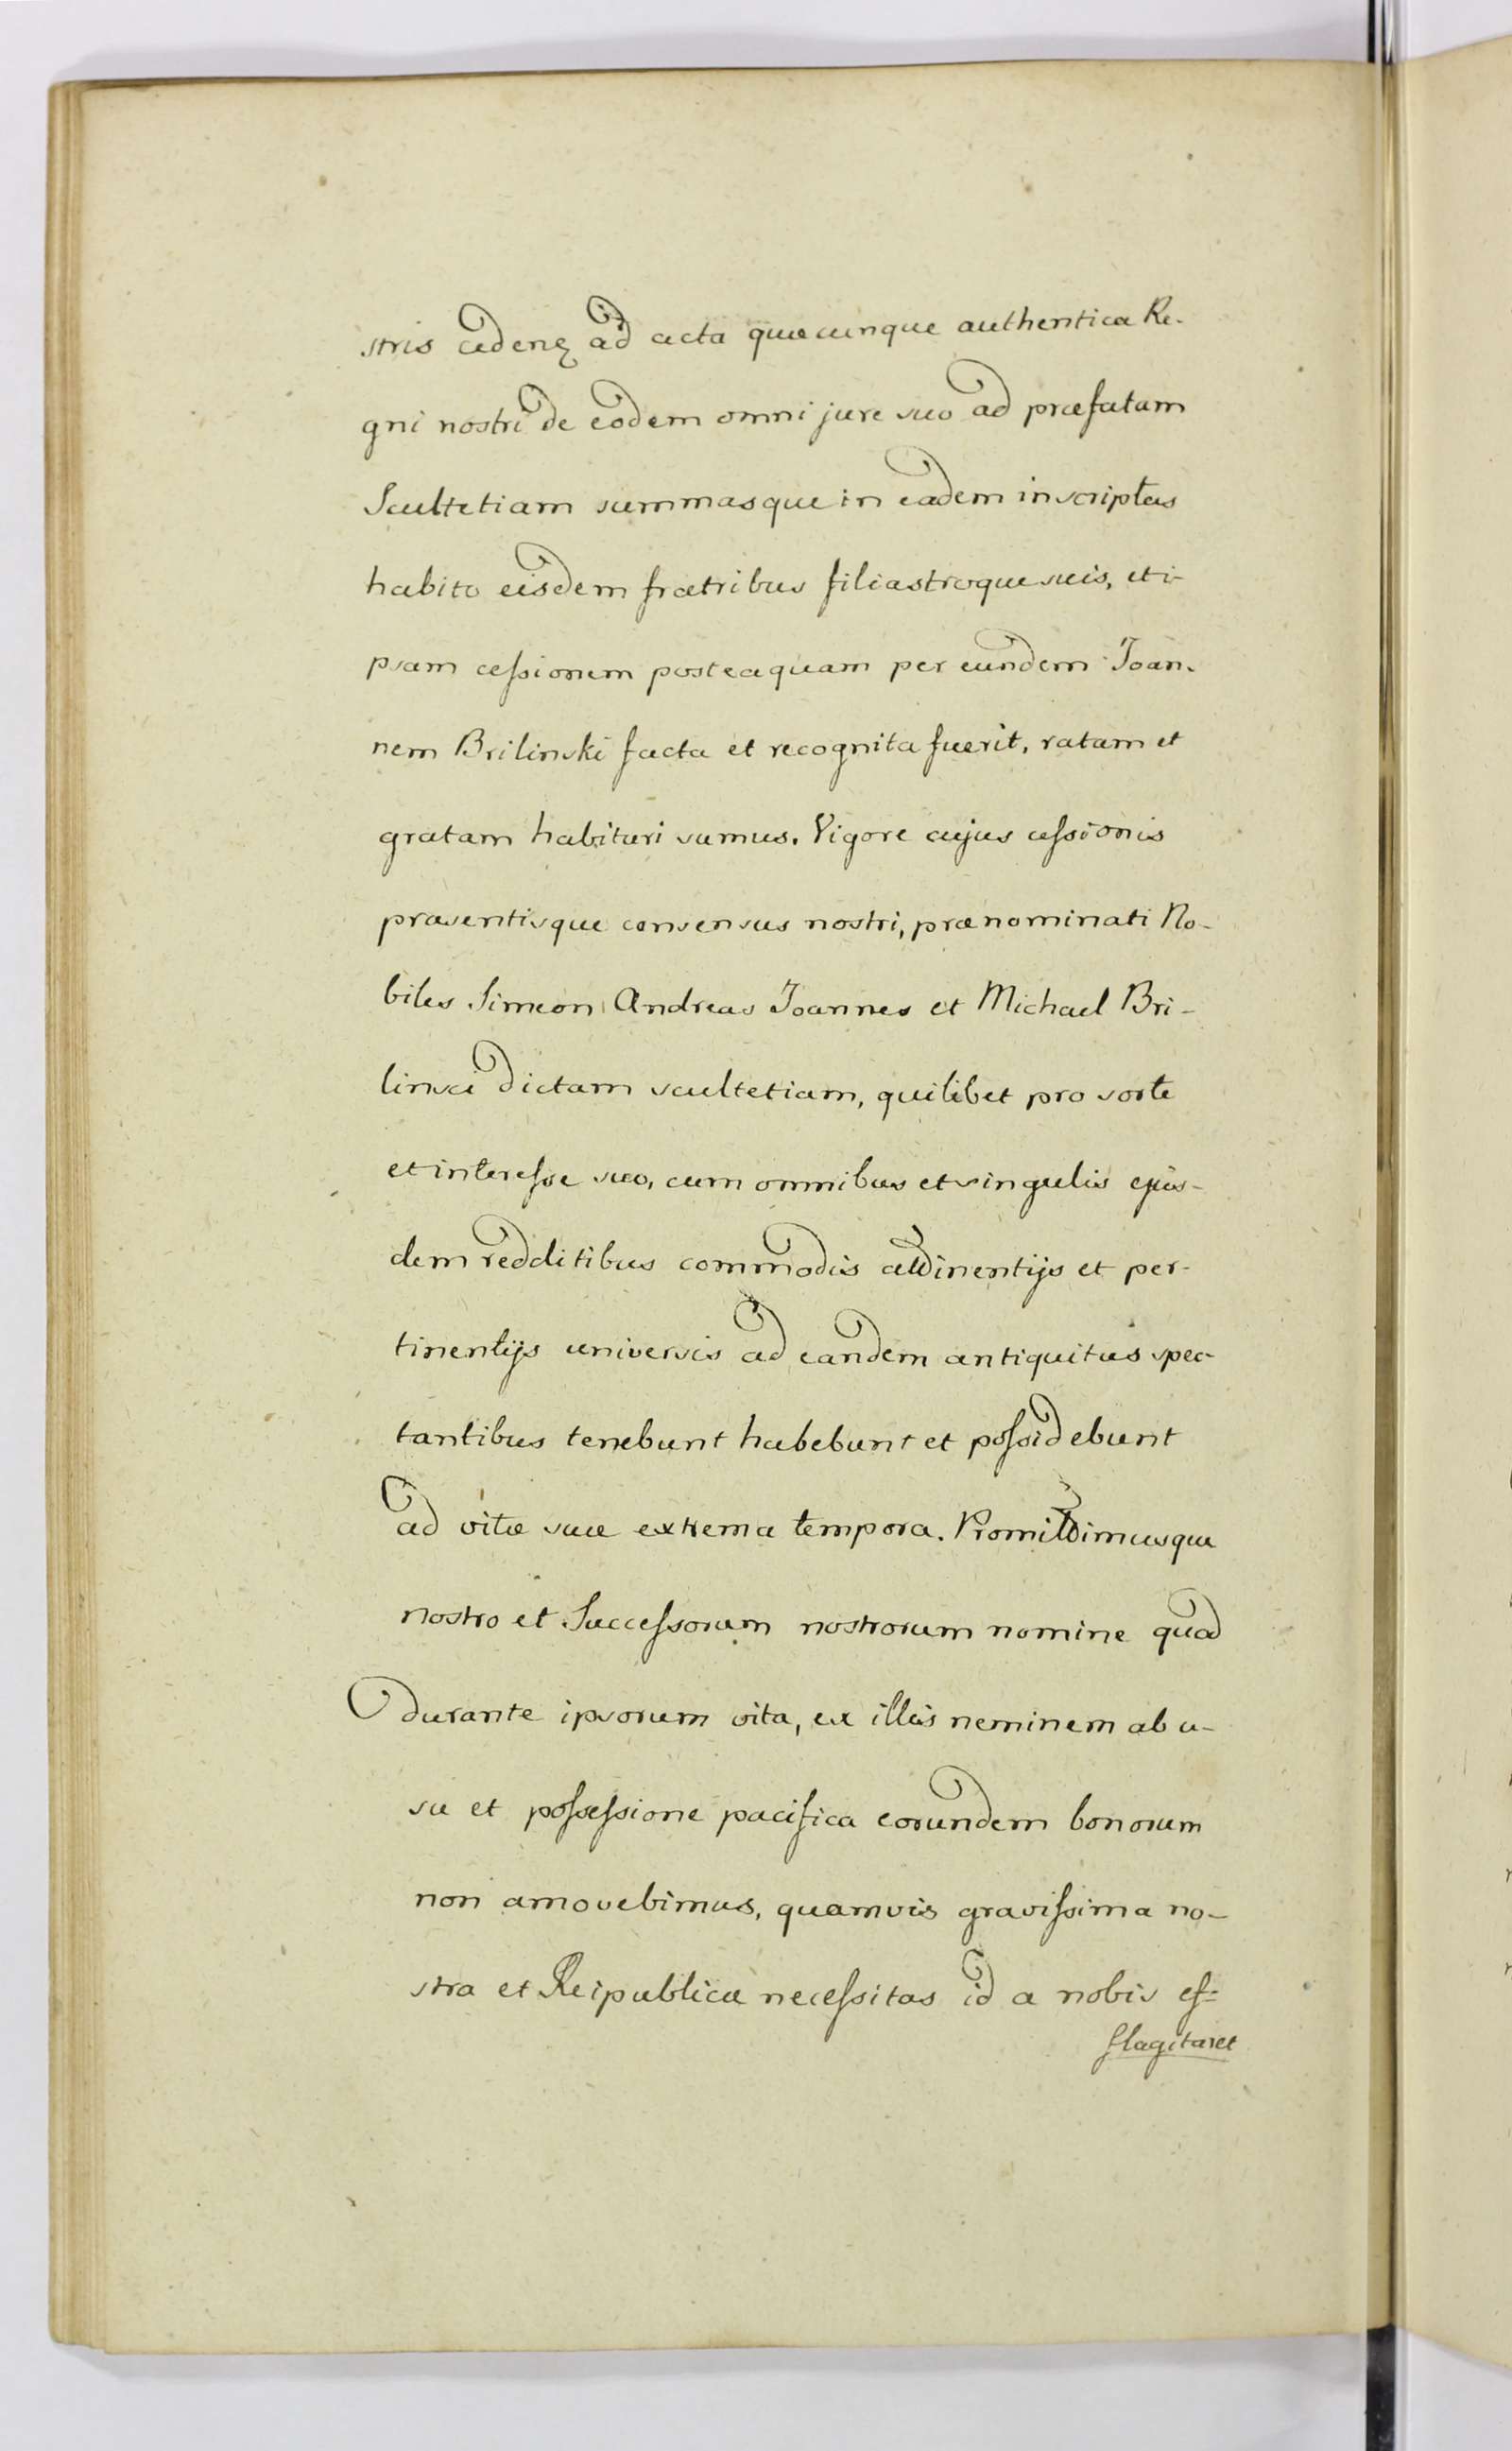 stris cedenꝫ ad acta quæcunque authentica Re-
gni nostri de eodem omni jure suo ad præfatam
Scultetiam summasque in eadem inscriptas
habito eisdem fratribus filiastroque suis, et i-
psam cessionem posteaquam per eundem Joan-
nem Brilinski facta et recognita fuerit, ratam et
gratam habituri sumus. Vigore cujus cessionis
præsentisque consensus nostri, prænominati No-
biles Simeon Andreas Joannes et Michael Bri-
linsci dictam scultetiam, quilibet pro sorte
et interesse suo, cum omnibus et singulis ejus-
dem redditibus commodis attinentijs et per-
tinentijs universis ad eandem antiquitus spec-
tantibus tenebunt habebunt et possidebunt
ad vitæ suæ extrema tempora. Promittimusque
nostro et Successorum nostrorum nomine quod
durante ipsorum vita, ex illis neminem ab u-
su et possessione pacifica eorundem bonorum
non amovebimus, quamvis gravissima no-
stra et Reipublicæ necessitas id a nobis ef=
flagitaret